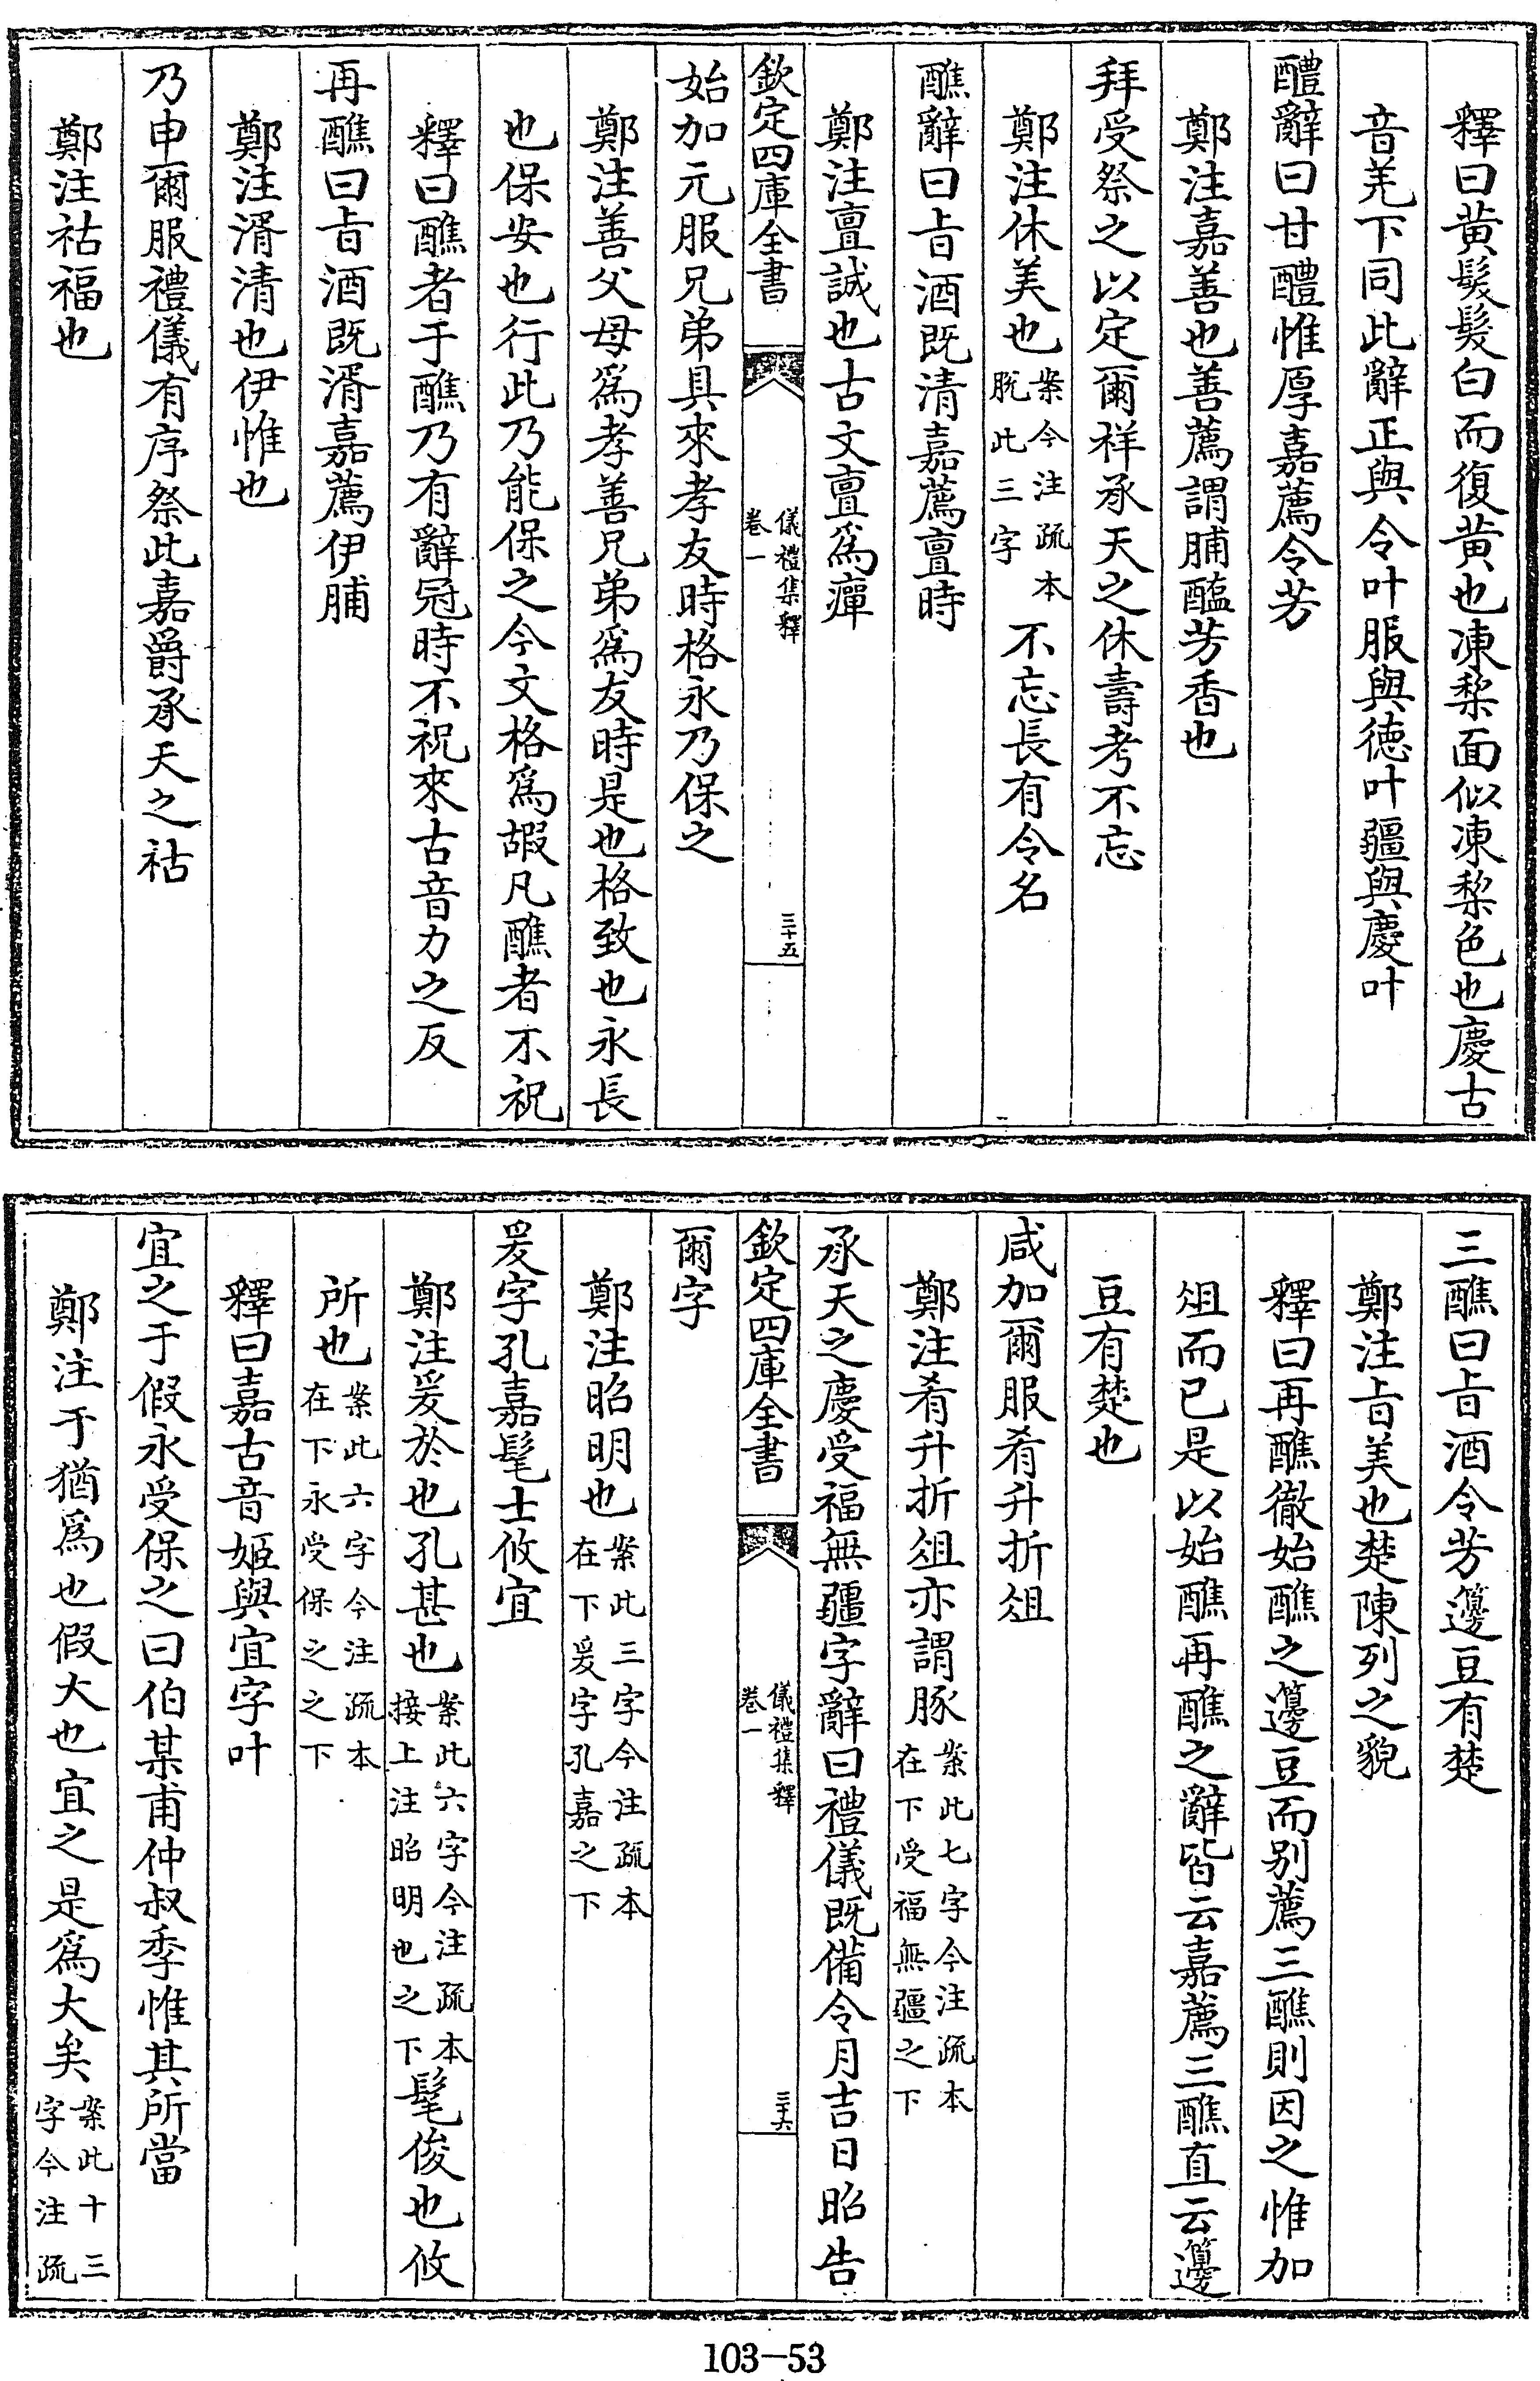 釋曰黄髮髮白而復黄也凍棃面似凍棃色也慶古
音羌下同此辭正與令叶服與徳叶疆與慶叶
醴辭曰甘醴惟厚嘉薦令芳
鄭注嘉善也善薦謂脯醢芳香也
拜受祭之以定爾祥承天之休壽考不忘
鄭注休美也案今注疏本脱此三字不忘長有令名
醮辭曰㫖酒既清嘉薦亶時
鄭注亶誠也古文亶為癉
欽定四庫全書
儀禮集釋
卷一
三十五
始加元服兄弟具來孝友時格永乃保之
鄭注善父母為孝善兄弟為友時是也格致也永長
也保安也行此乃能保之今文格為嘏凡醮者不祝
釋曰醮者于醮乃有辭冠時不祝來古音力之反
再醮曰㫖酒既湑嘉薦伊脯
鄭注湑清也伊惟也
乃申爾服禮儀有序祭此嘉爵承天之祜
鄭注祜福也
三醮曰㫖酒令芳籩豆有楚
鄭注㫖美也楚陳列之貌
釋曰再醮徹始醮之籩豆而别薦三醮則因之惟加
俎而已是以始醮再醮之辭皆云嘉薦三醮直云籩
豆有楚也
咸加爾服肴升折俎
鄭注肴升折俎亦謂豚案此七字今注疏本在下受福無疆之下
承天之慶受福無疆字辭曰禮儀既備令月吉日昭告
欽定四庫全書
儀禮集釋
卷一
三十六
爾字
鄭注昭明也案此三字今注疏本在下爰字孔嘉之下
爰字孔嘉髦士攸宜
鄭注爰於也孔甚也案此六字今注疏本接上注昭明也之下髦俊也攸
所也案此六字今注疏本在下永受保之之下
釋曰嘉古音姬與宜字叶
宜之于假永受保之曰伯某甫仲叔季惟其所當
鄭注于猶為也假大也宜之是為大矣案此十三字今注疏
103-53